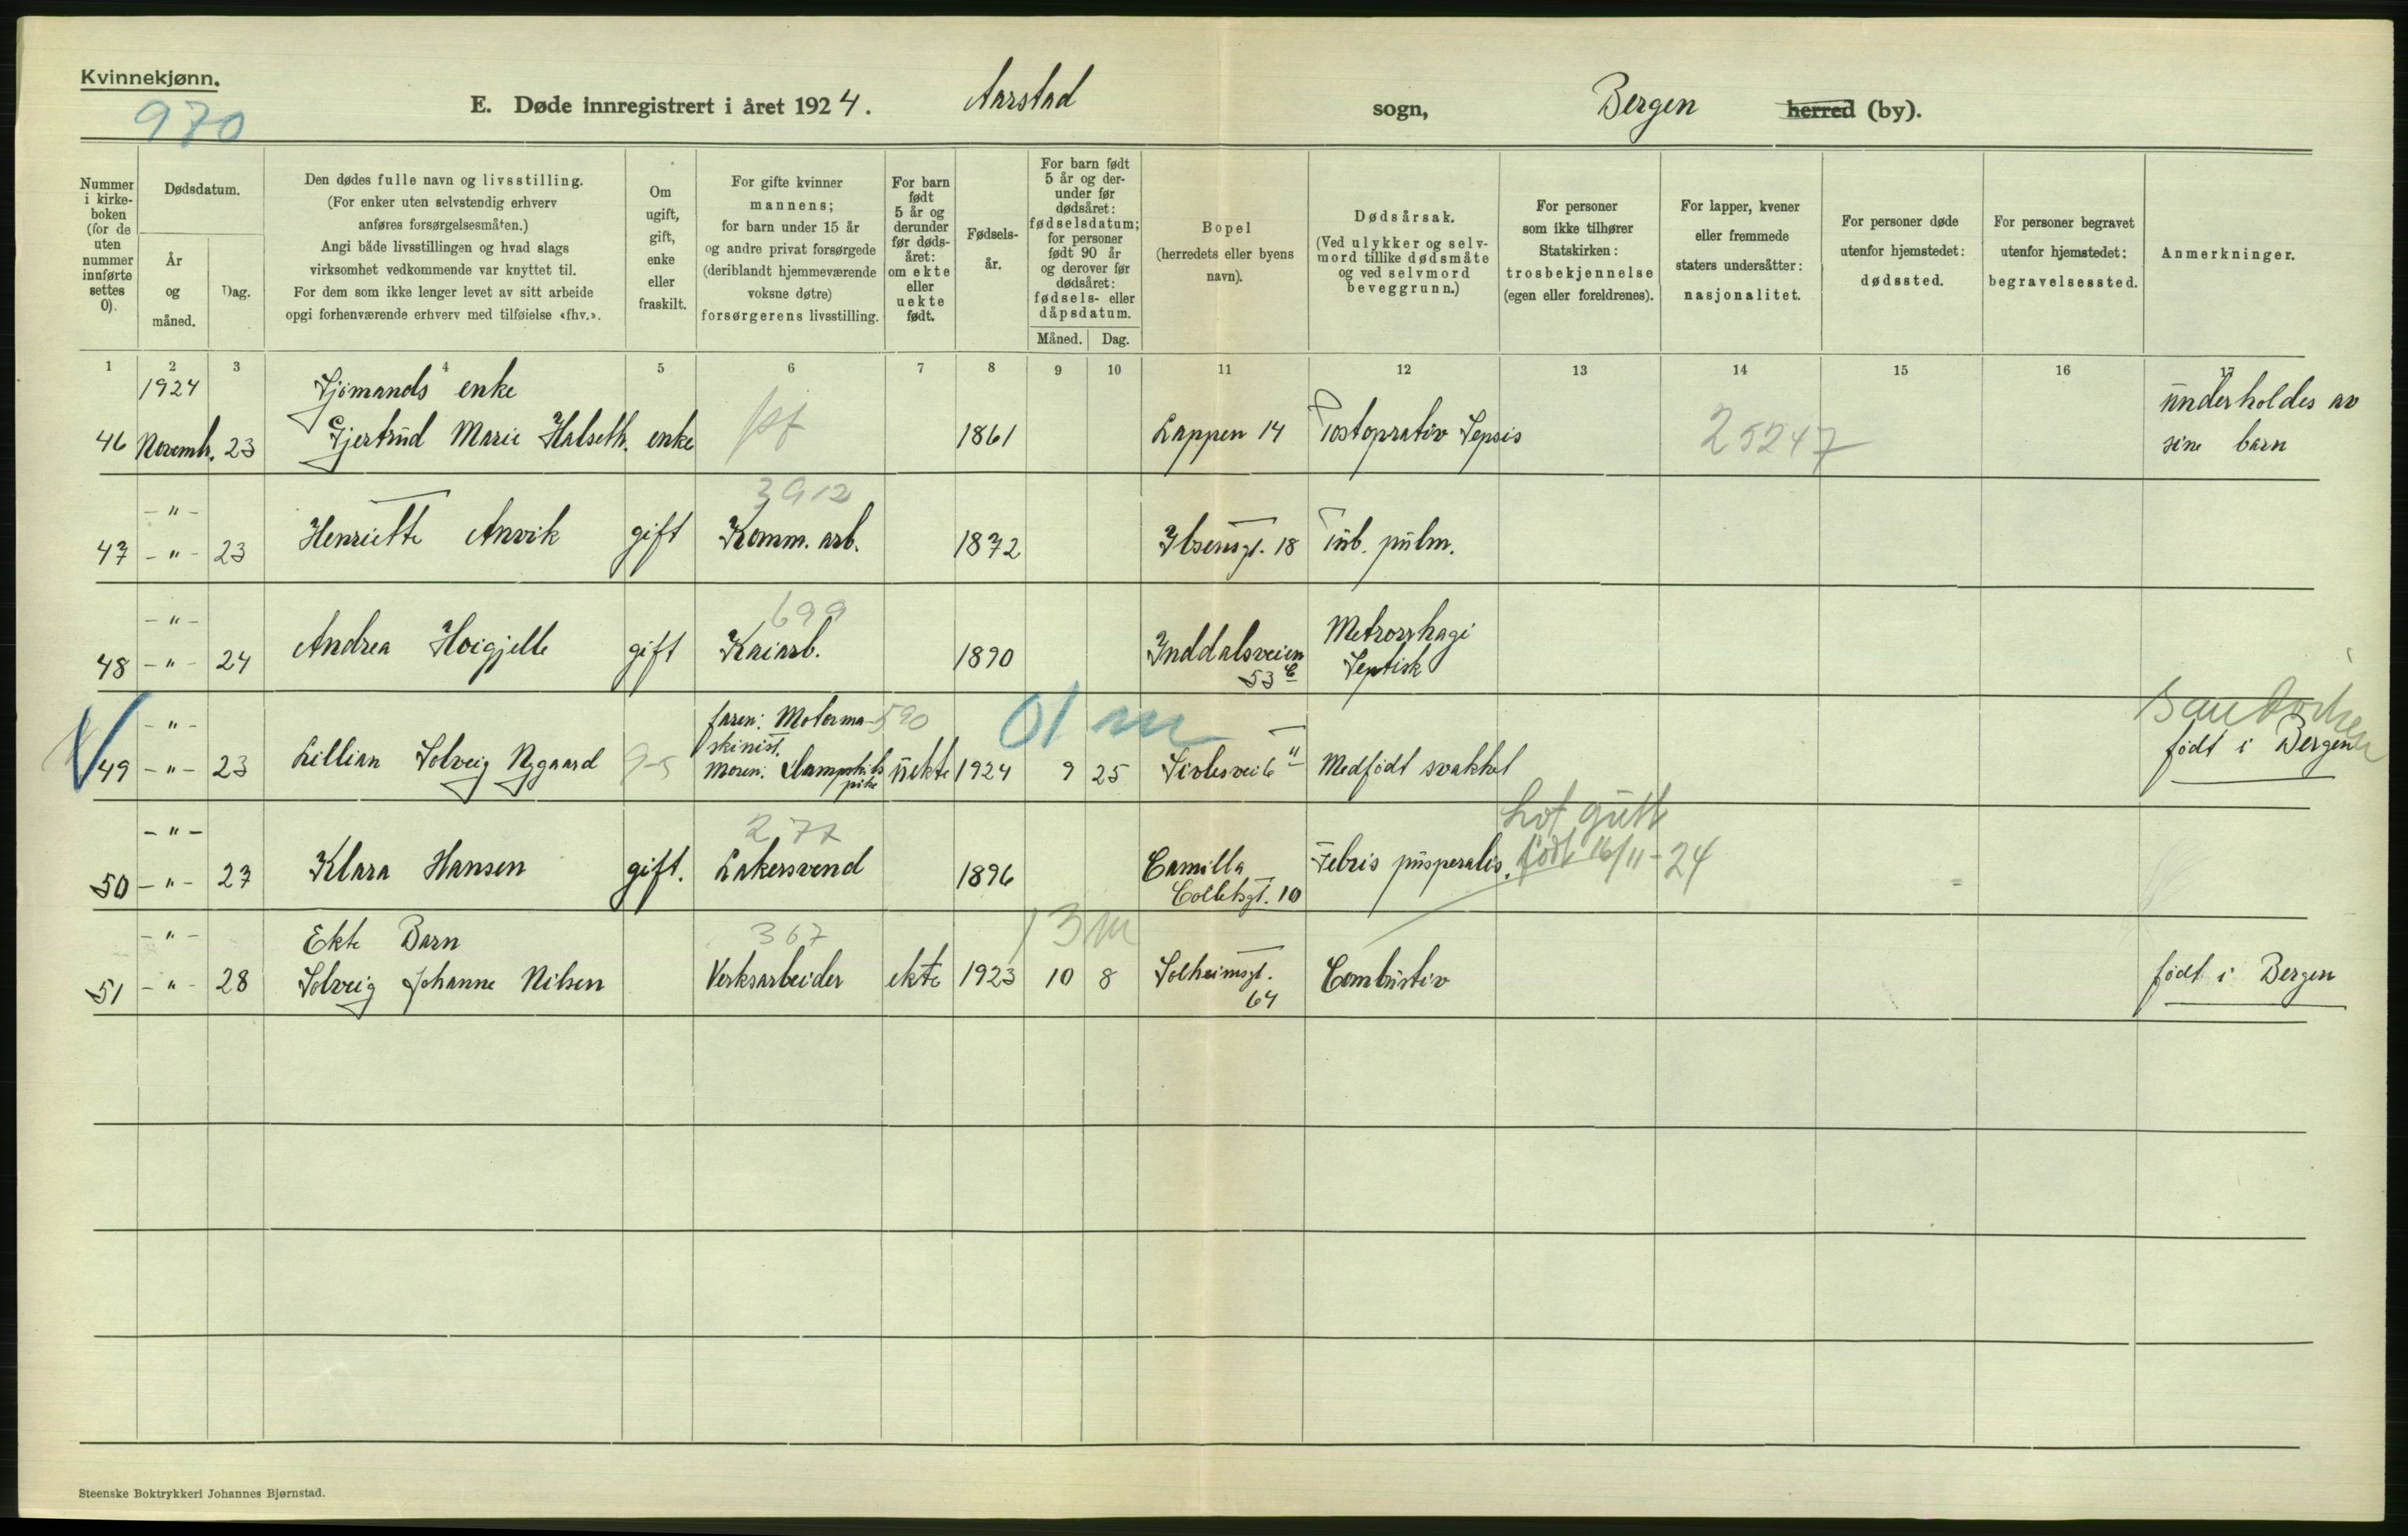 Kvinnekjønn.
970
E. Døde innregistrert i året 1924. Aarstad sogn, Bergen herred (by).
Nummer i kirke-boken (for de uten nummer innførte settes 0).
Dødsdatum.
År og måned.
Dag.
Den dødes fulle navn og livsstilling.
(For enker uten selvstendig erhverv
anføres forsørgelsesmåten.)
Angi både livsstillingen og hvad slags
virksomhet vedkommende var knyttet til.
For dem som ikke lenger levet av sitt arbeide
opgi forhenværende erhverv med tilføielse «fhv.».
Om ugift, gift, enke eller fraskilt.
For gifte kvinner
mannens;
for barn under 15 år
og andre privat forsørgede
(deriblandt hjemmeværende
voksne døtre)
forsørgerens livsstilling.
For barn født 5 år og derunder før døds-året: om ekte eller uekte født.
Fødsels-år.
For barn født 5 år og der-under før dødsåret: fødselsdatum; for personer født 90 år og derover før dødsåret: fødsels- eller dåpsdatum.
Måned. Dag.
Bopel
(herredets eller byens
navn).
Dødsårsak.
(Ved ulykker og selv-
mord tillike dødsmåte
og ved selvmord
beveggrunn.)
For personer
som ikke tilhører
Statskirken:
trosbekjennelse
(egen eller foreldrenes).
For lapper, kvener
eller fremmede
staters undersåtter:
nasjonalitet.
For personer døde
utenfor hjemstedet:
dødssted.
For personer begravet
utenfor hjemstedet:
begravelsessted.
Anmerkninger.
1 2 3 4 5 6 7 8 9 10 11 12 13 14 15 16 17
1924 Sjømands enke underholdes av
46 Novemb. 23 Gjertrud Marie Halseth. enke 1861 Lappen 14 Postoprativ Sepsis 25247 sine barn
- " - 3912
47 - " - 23 Henriette Anvik gift Komm. arb. 1872 Ibsensgt. 18 Tub. pulm.
- " - 699 Metrorrhagi
48 - " - 24 Andrea Hoigjelle gift Kaiarb. 1890 Inddalsveien Septisk
53 C
- " - faren: Motorma- 590 01 m
skinist.
49 - " - 23 Lillian Solveig Nygaard moren: uekte 1924 9 25 Medfødt svakhet født i Bergen
- " - 277 født 16/11-24
50 - " - 27 Klara Hansen gift. Bakersvend 1896 Camilla Febris puerperalis.
Colletsgt. 10
- " - Ekte Barn 367 13 m
51 - " - 28 Solveig Johanne Nilsen Verksarbeider ekte 1923 10 8 Solheimsgt. Combustio født i Bergen
64
Steenske Boktrykkeri Johannes Bjørnstad.